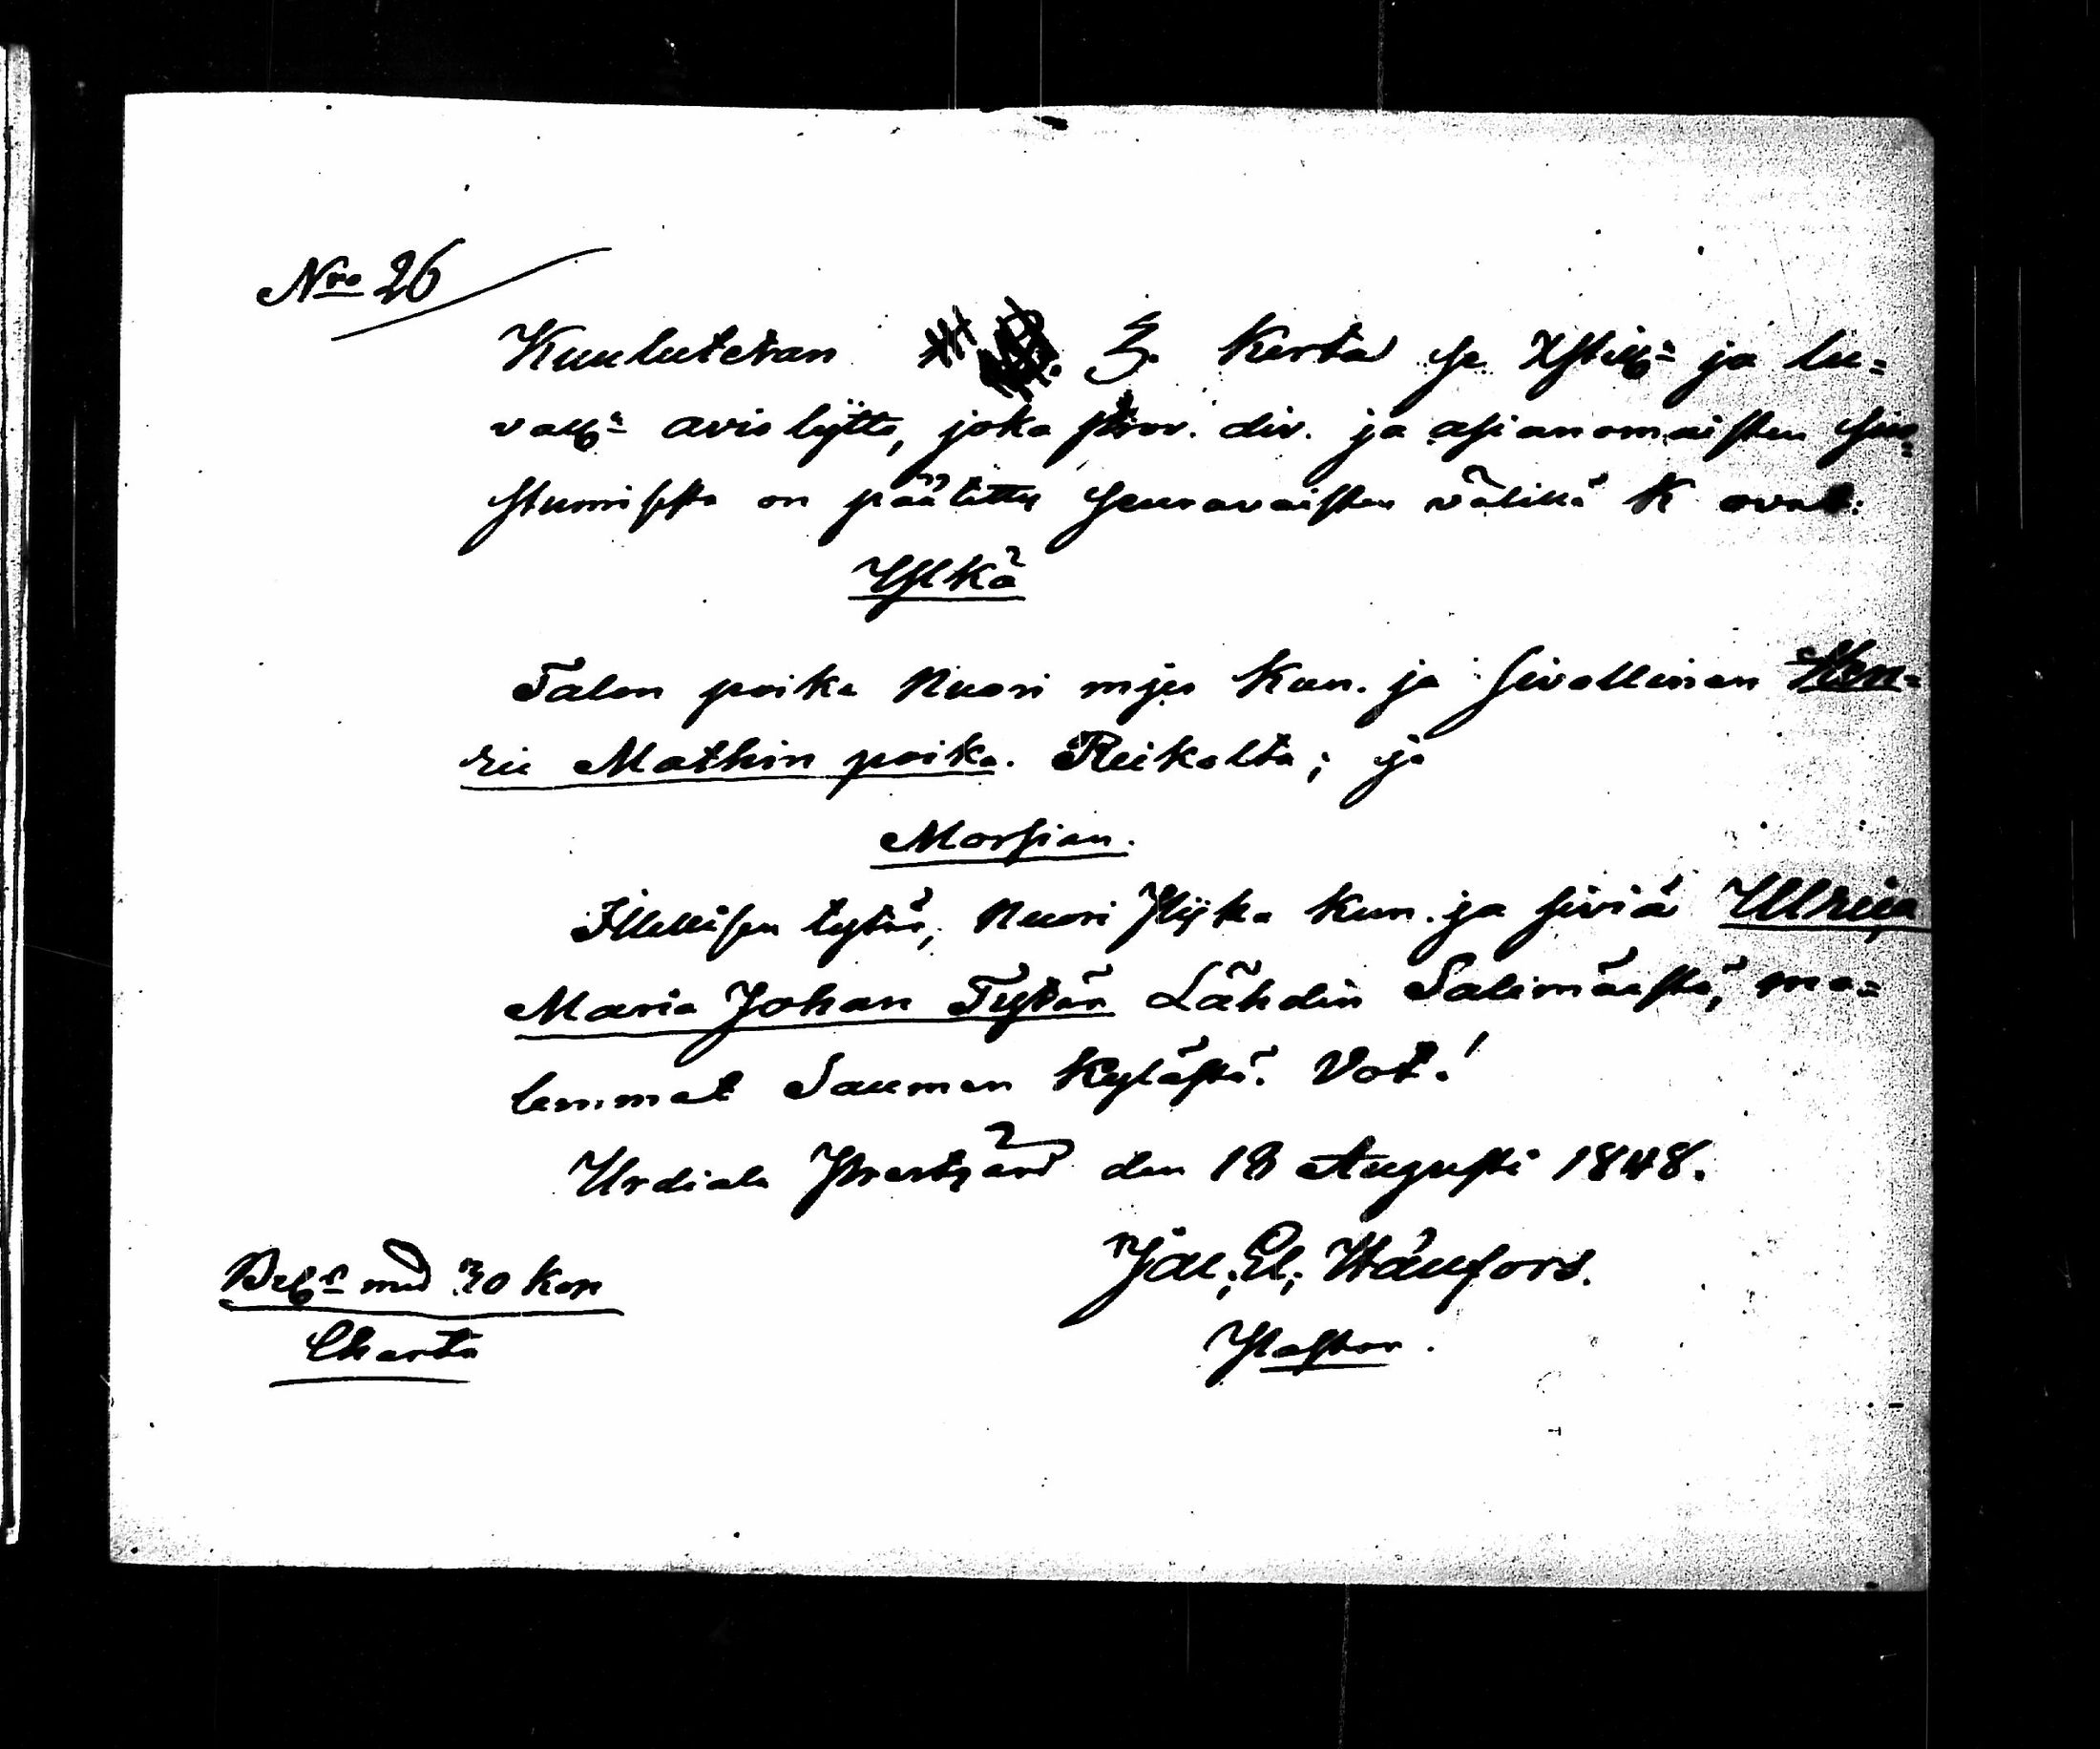 Nro 26
Kuulutetan 3. Kerta se ja lu=
avioliitto, joka prov. div. ja asianomaisten suo=
stumisesta on päätetty seuravaisten välillä K ovat:
Ylkä
Talon poika Nuori mjes Kun. ja sivollinen Hen=
Mathin poika. Reikolta; ja
Morsian.
Itsellisen tytär, Nuori Pijka Kun. ja siviä Ulrica
Maria Johan Tytär Lähdin Salimäestä, mo=
lemmat Sauman Kylästä. Vot!
Urdiala Prestgård den 18 Augusti 1848.
Joh. El.
Pastor.
Bel. med 30 kop
Charta